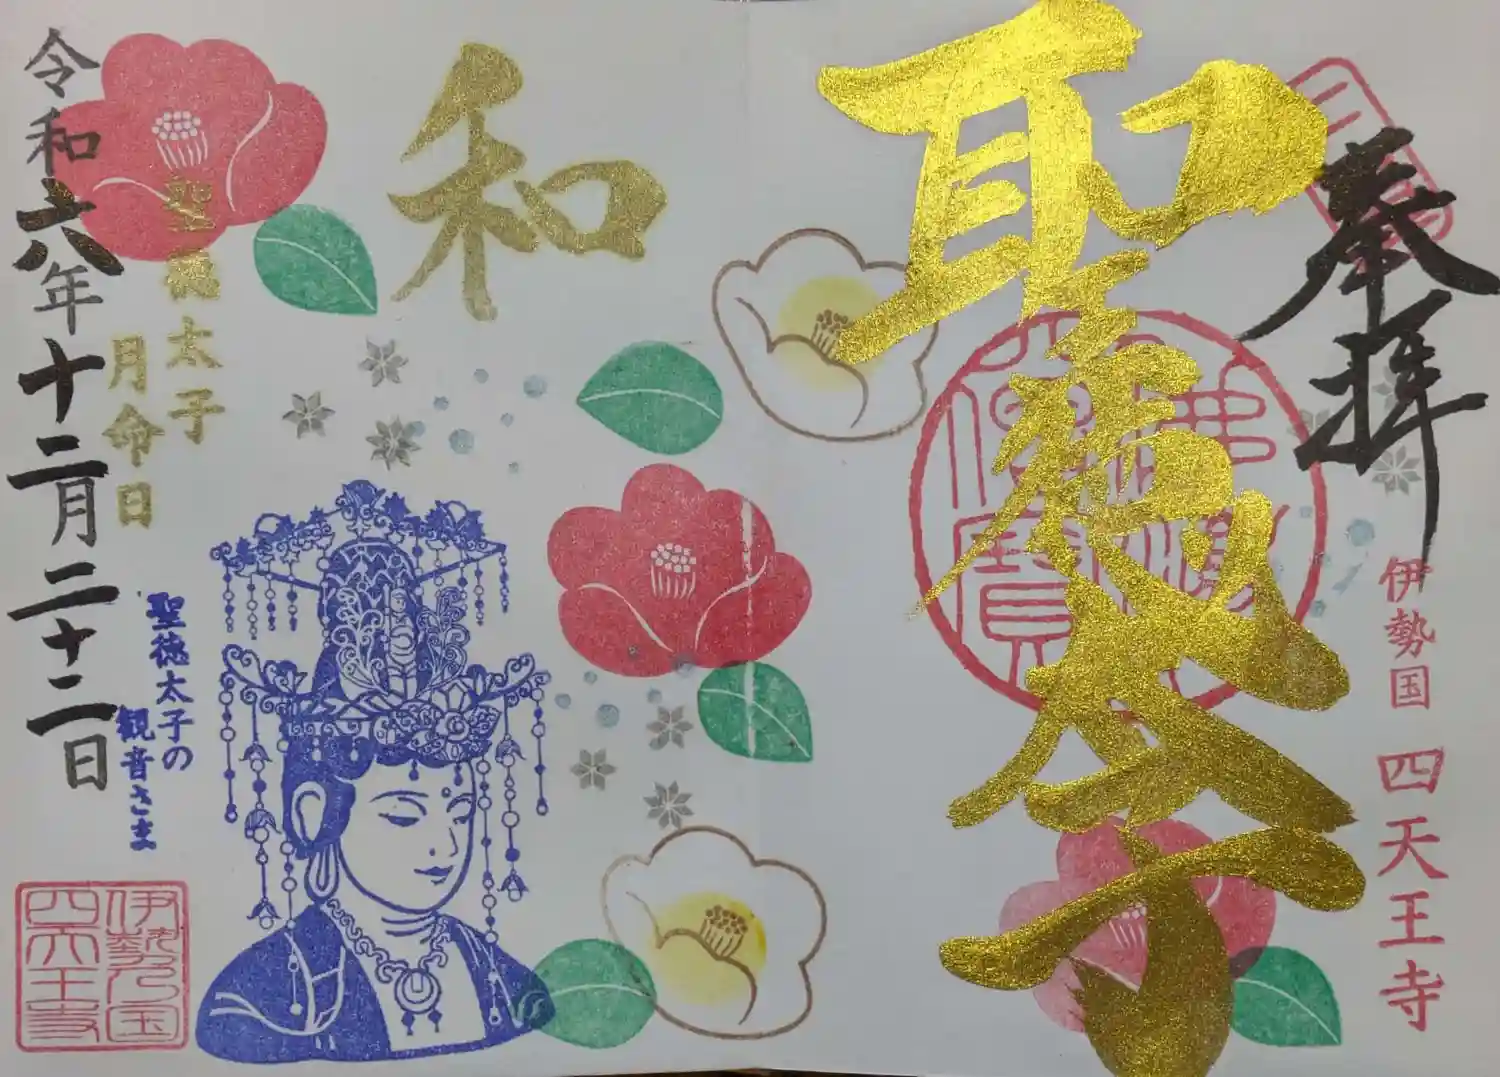 奉拝
伊勢国 四天王寺
聖徳太子
佛法僧寶
和
聖徳太子
月命日
令和六年十二月二十二日
聖徳太子の
観音さま
伊勢乃国
四天王寺